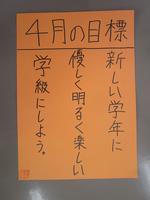 4月の目標
新しい学年に
優しく明るく楽しい
学級にしよう。